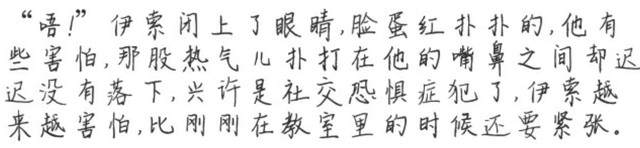 “唔!”伊索闭上了眼睛,脸蛋红扑扑的,他有
些害怕,那股热气儿扑打在他的嘴鼻之间却迟
迟没有落下,兴许是社交恐惧症犯了,伊索越
来越害怕,比刚刚在教室里的时候还要紧张。